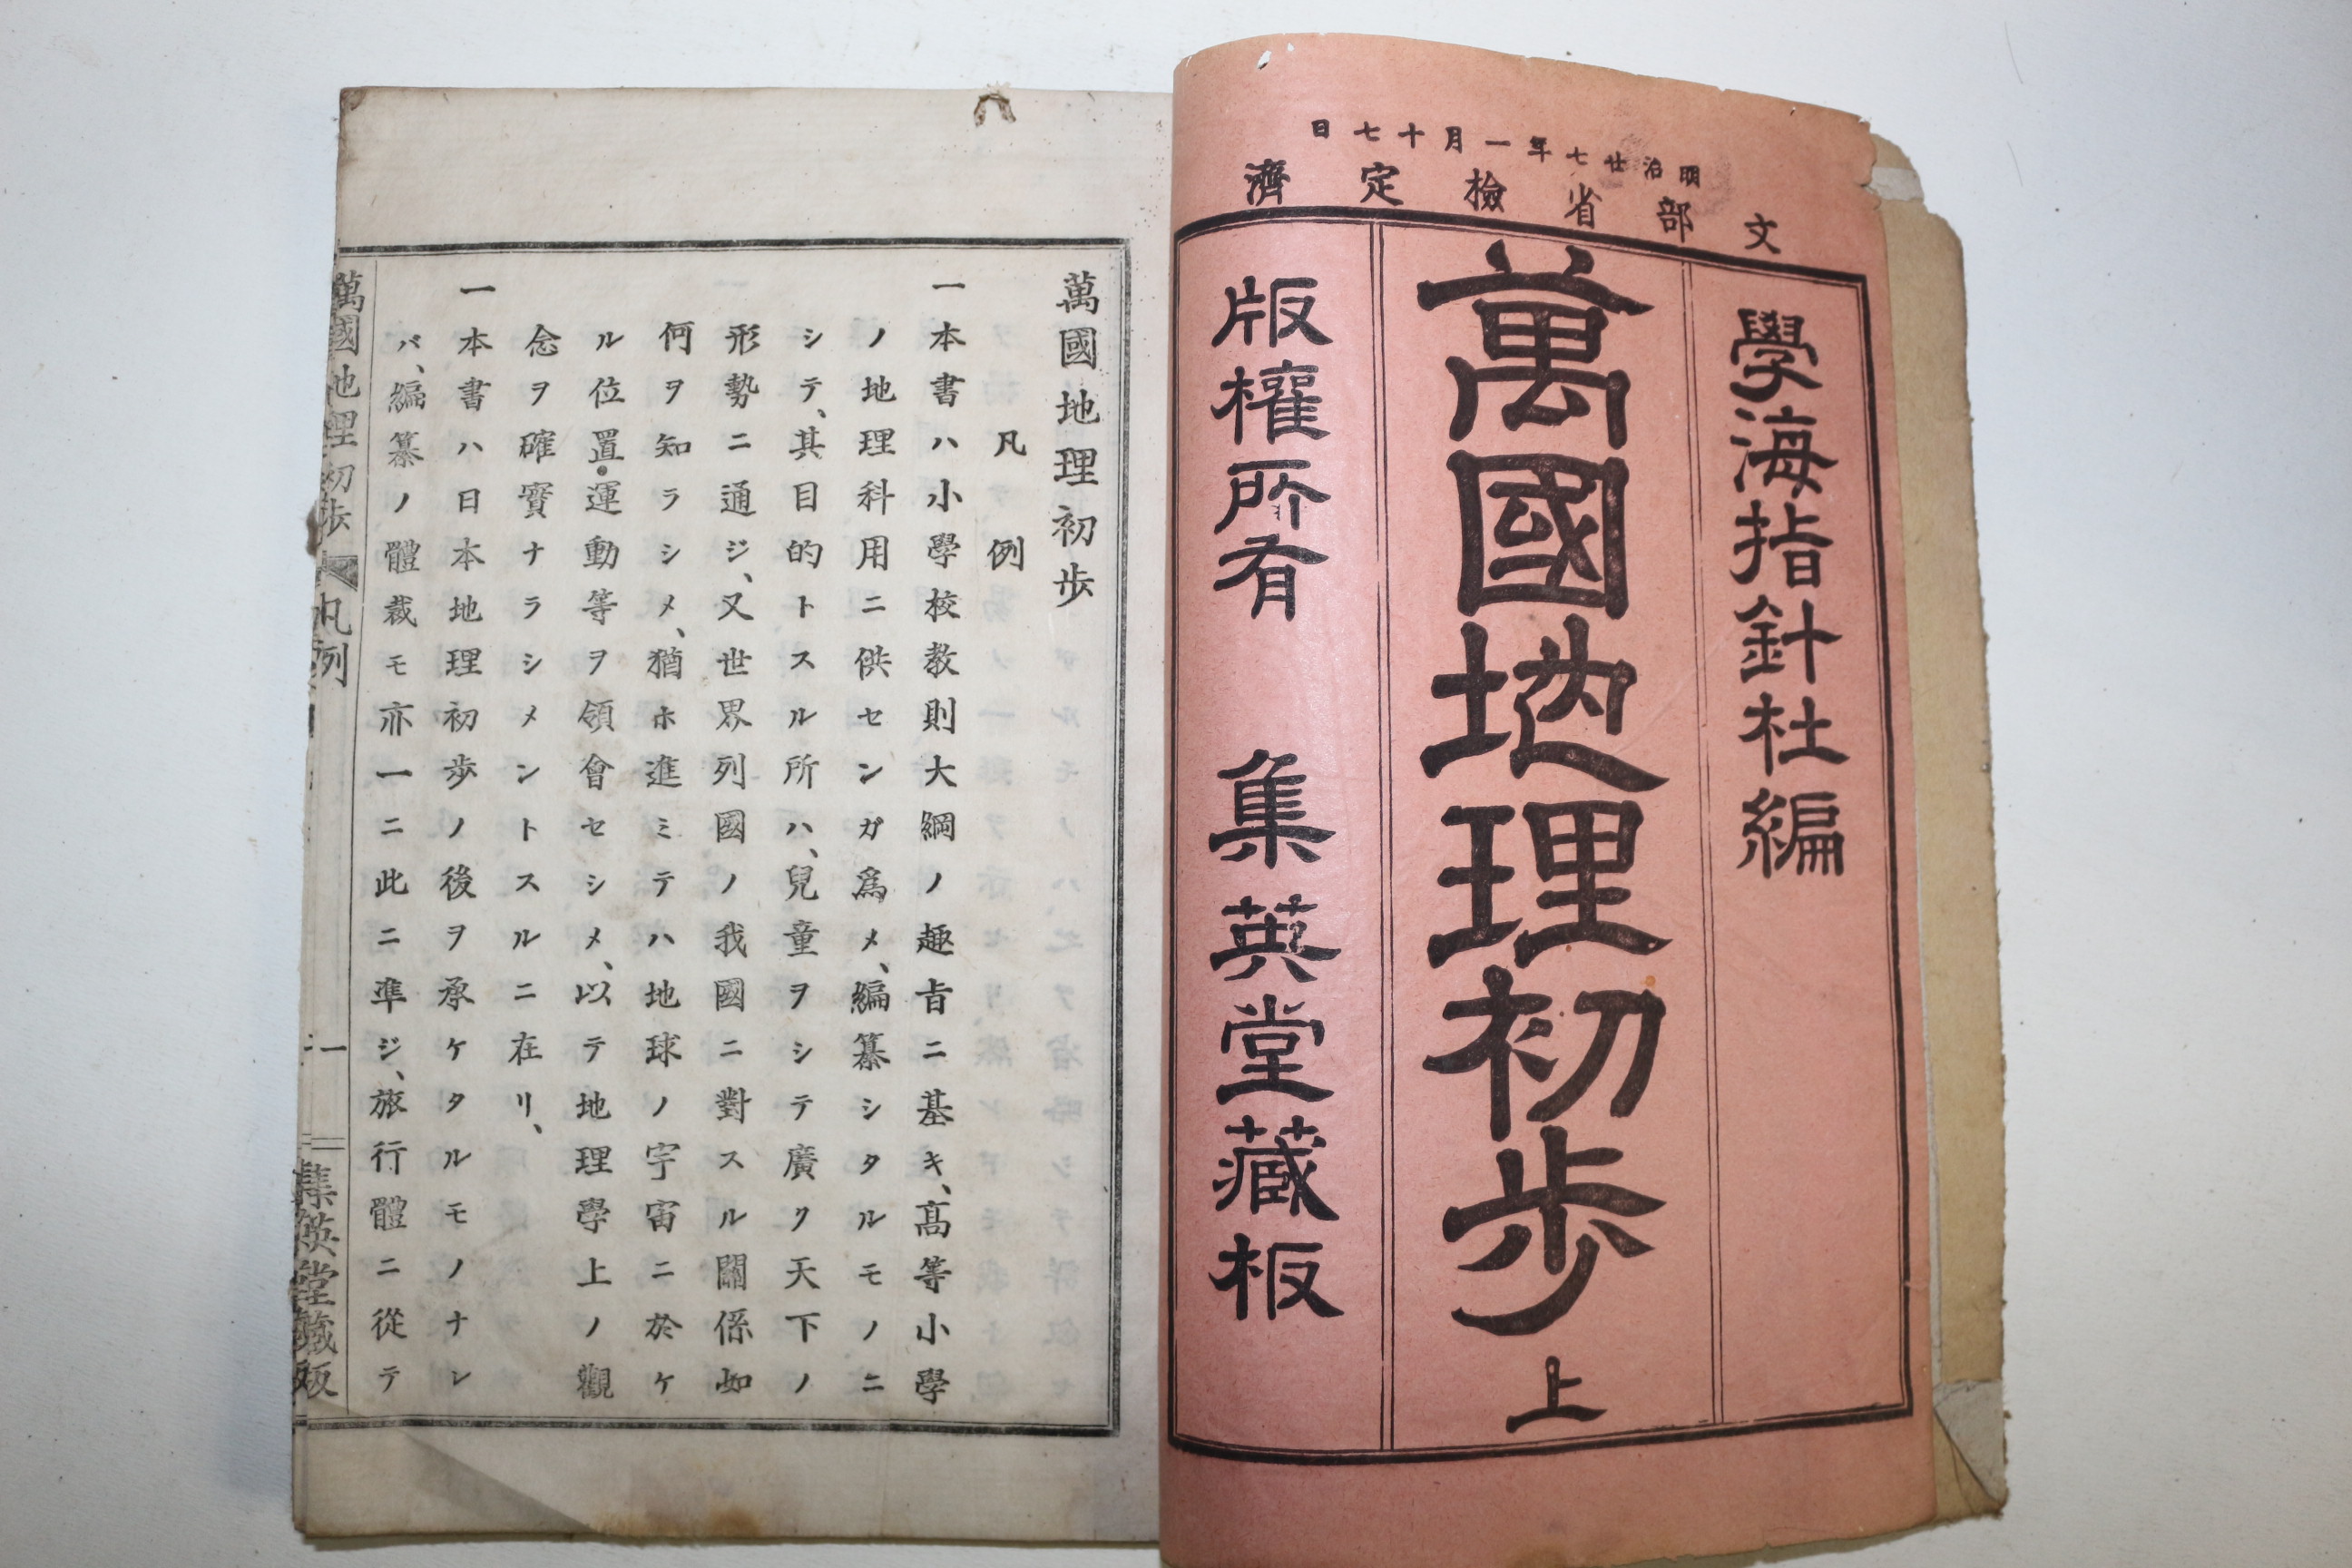 明治廿七年一月十七日
文部省檢定濟
學海指針社編
萬國地理初步 上
版權所有 集英堂藏板
萬國地理初步
凡例
一本書ハ小學校教則大綱ノ趣旨ニ基キ、高等小學
ノ地理科用ニ供センガ爲メ、編纂シタルモノニ
シテ、其目的トスル所ハ、兒童ヲシテ廣ク天下ノ
形勢ニ通ジ、又世界列國ノ我國ニ對スル關係如
何ヲ知ラシメ、猶ホ進ミテハ地球ノ宇宙ニ於ケ
ル位置・運動等ヲ領會セシメ、以テ地理學上ノ觀
念ヲ確實ナラシメントスルニ在リ、
一本書ハ日本地理初步ノ後ヲ承ケタルモノナレ
バ、編纂ノ體裁モ亦一ニ此ニ準ジ、旅行體ニ從テ
萬國地理初步 凡例 一 集英堂藏版